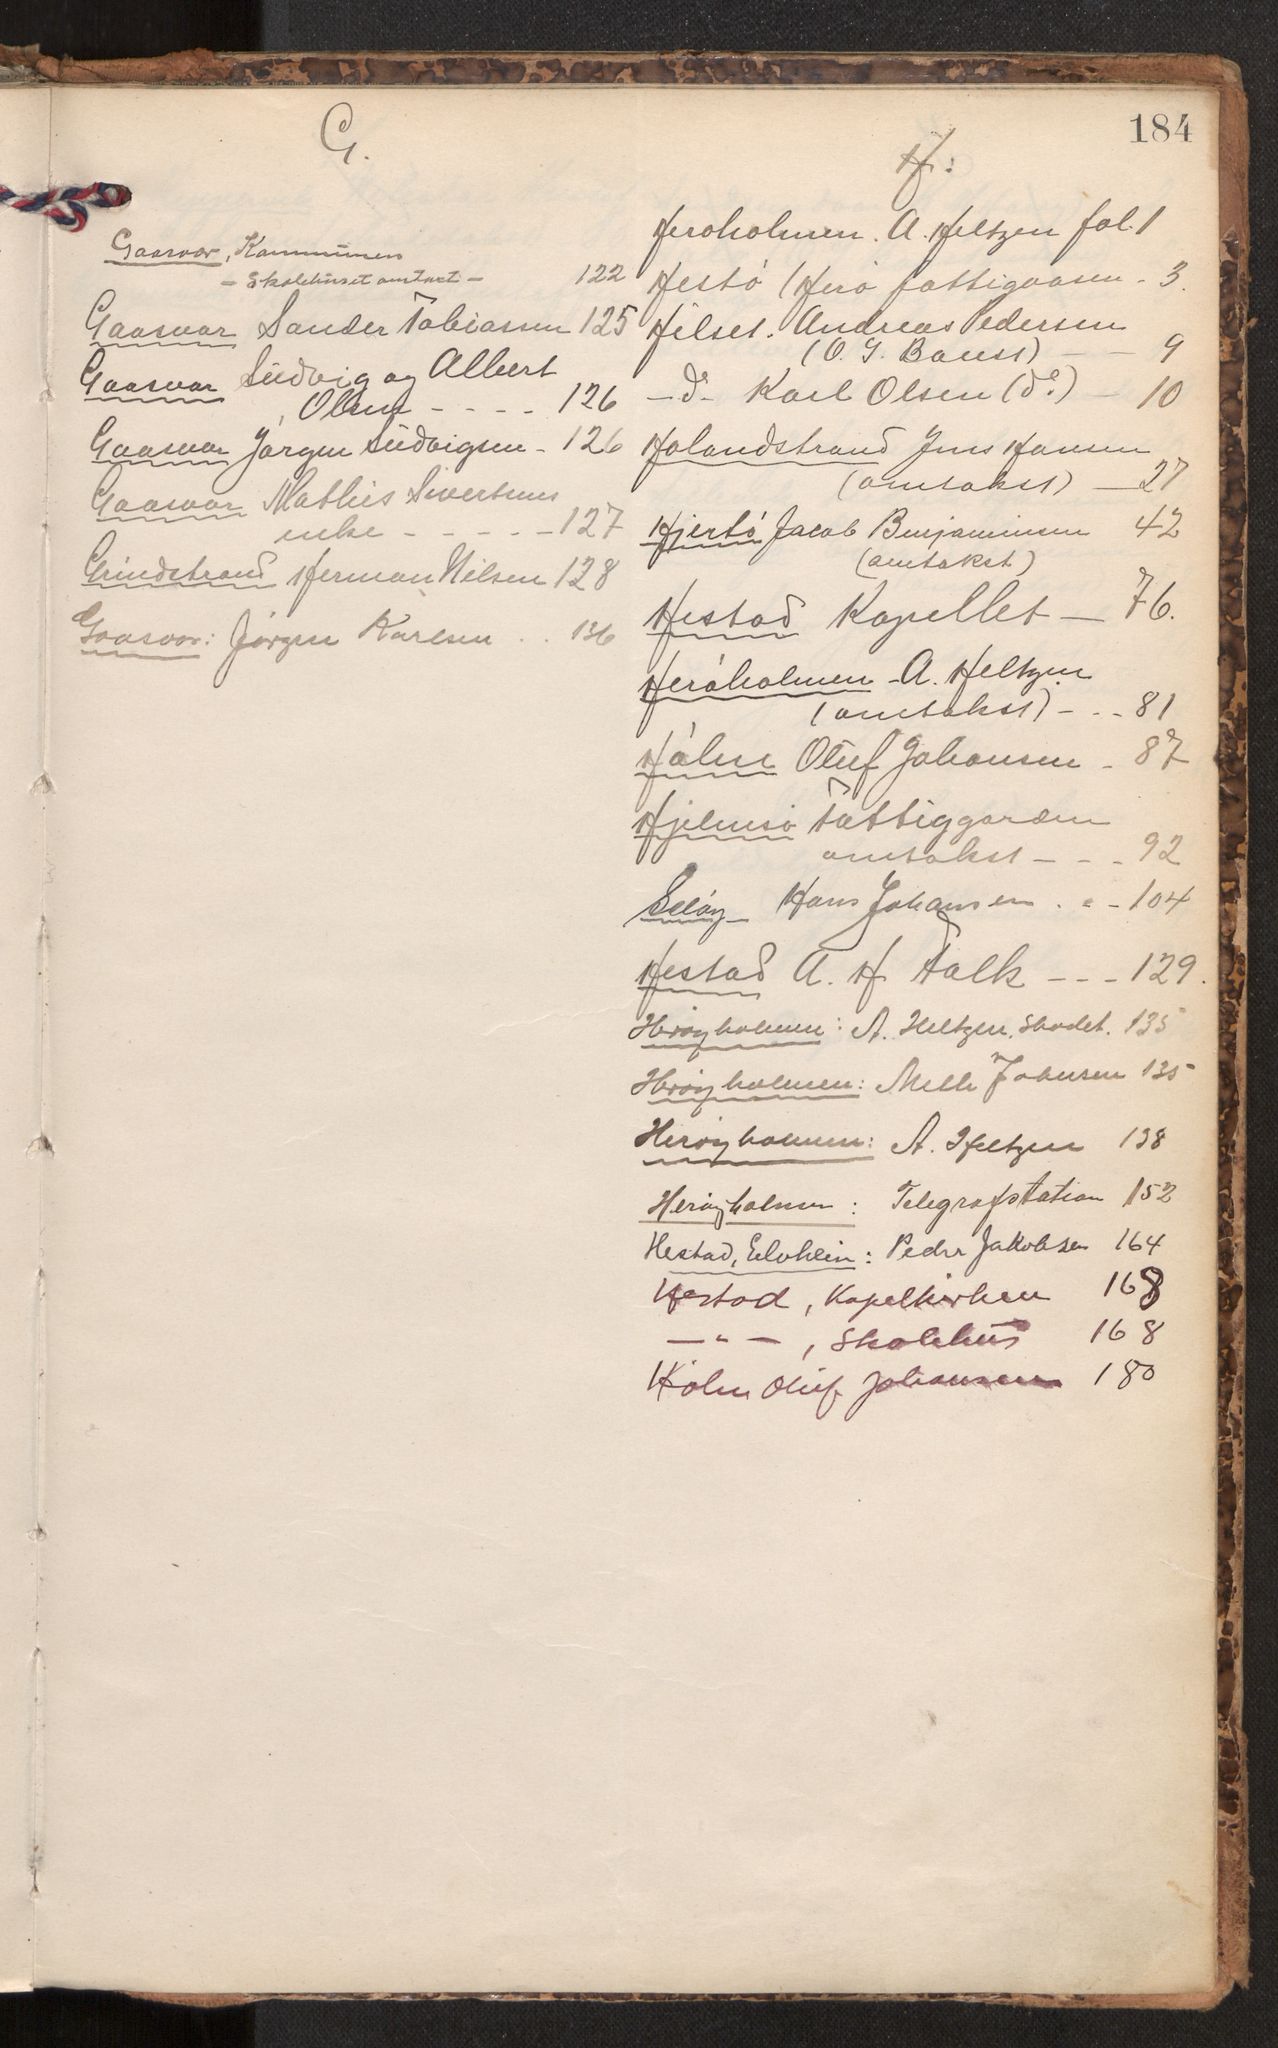 184
G.
Gaasvær, Kommunen
- Skolehuset omtaxt - 122
Gaasvær Sander Tobiassen 125
Gaasvær Ludvig og Albert
Olsen - - - - 126
Gaasvær Jørgen Ludvigsen - 126
Gaasvær Mathis Sivertsens
enke - - - - - 127
Grindstrand Herman Nilsen 128
Gaasvær: Jörgen Karlsen . . 136
H:
Heröholmen. A. Heltzen fol. 1
Hestö (Herö fattigvæsen - 3.
Hilset. Andreas Pedersen
(O. G. Baust) - - 9
- do - Karl Olsen (do) - 10
Halandstrand Jens Hansen
(omtakst) - 27
Hjertö Jacob Benjaminsen 42
(omtakst)
Hestad Kapellet - 76.
Heröholmen - A. Heltzen
(omtakst) - - - 81
Hölen Oluf Johansen - 87
Hjelmsö Fattiggaarden
omtakst - - - 92
Seløy - Hans Johansen . - - 104
Hestad A. H. Falk - - - 129.
Herøyholmen: A. Heltzen, 135
Herøyholmen: Johnsen 135
Herøyholmen: A. Heltzen 138
Herøyholmen: Telegrafstation 152
Hestad, : Peder Jakobsen 164
Hestad, Kapelkirken 168
- " - , Skolehus 168
Hölen Oluf Johansen 180